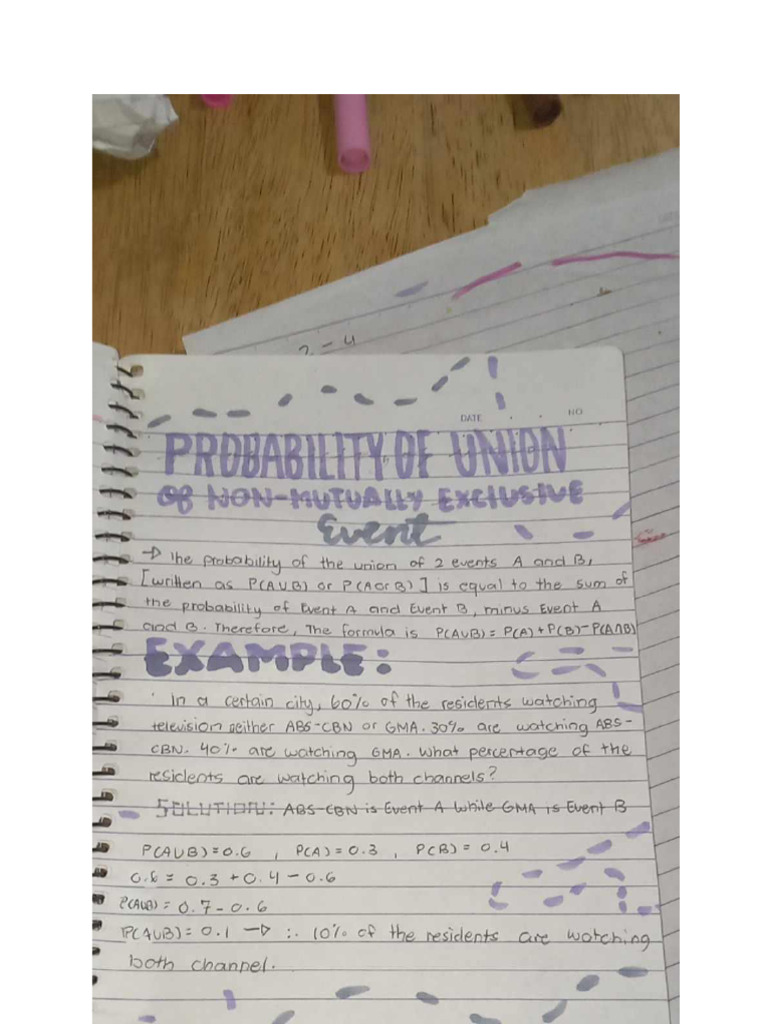 2 - 4
DATE . . NO
PROBABILITY OF UNION
OF NON-MUTUALLY EXCLUSIVE
Event
→ The probability of the union of 2 events A and B,
[written as P(A∪B) or P(A or B)] is equal to the sum of
the probability of Event A and Event B, minus Event A
and B. Therefore, The formula is P(A∪B) = P(A) + P(B) - P(A∩B)
EXAMPLE:
In a certain city, 60% of the residents watching
television neither ABS-CBN or GMA. 30% are watching ABS-
CBN. 40% are watching GMA. What percentage of the
residents are watching both channels?
SOLUTION: ABS-CBN is Event A while GMA is Event B
P(A∪B) = 0.6 , P(A) = 0.3 , P(B) = 0.4
0.6 = 0.3 + 0.4 - 0.6
P(A∪B) = 0.7 - 0.6
P(A∪B) = 0.1 → ∴ 10% of the residents are watching
both channel.